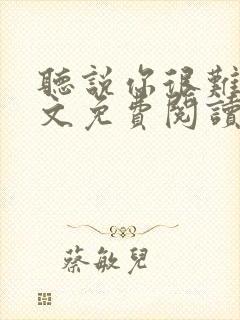 聽說你很難
文免費閱讀
蔡敏兒